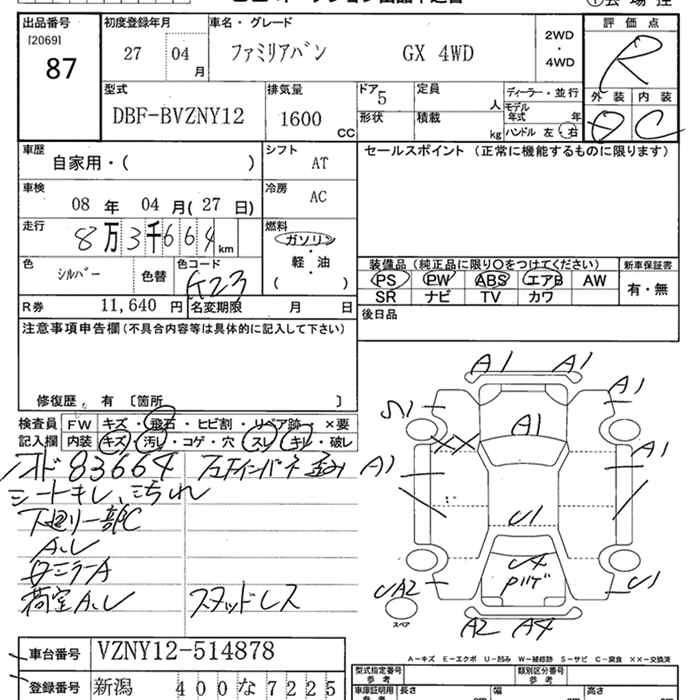 出品番号 初度登録年月 車名・グレード 評価点
[2069] 87
27 04 月
ファミリアバン GX 4WD
2WD・4WD
R
型式 排気量 ドア 定員 ディーラー・並行 外装 内装
DBF-BVZNY12 1600 CC
5
人
モデル年式 年
形状 積載 kg ハンドル 左・右
C
車歴 シフト セールスポイント (正常に機能するものに限ります)
自家用・( ) AT
車検 冷房
08 年 04 月(27 日) AC
走行 燃料
8万3千664km ガソリン・軽・油( )
色 色コード
シルバー 色替 K23
装備品(純正品に限り○をつけてください) 新車保証書
PS PW ABS エアB AW 有・無
SR ナビ TV カワ
R券 11,640 円 名変期限 月 日
後日品
注意事項申告欄(不具合内容等は具体的に記入して下さい)
修復歴、有 〔箇所 〕
検査員記入欄
FW キズ・飛石・ヒビ割・リペア跡・×要
内装 キズ・汚レ・コゲ・穴・スレ・キレ・破レ
83664
シートキレ、汚れ
下廻り一部C
A、レ
ミラーA
荷室A、レ スタッドレス
A1 A1
A1
S1
A1
XX
A1
A1
U1
U4
UA2
U1
A2 A4
スペア
A-キズ E-エクボ U-凹み W-補修跡 S-サビ C-腐食 XX-交換済
車台番号 VZNY12-514878
登録番号 新潟 400 な 7225
型式指定番号 参考 類別区分番号 参考
車庫証明用 長さ 幅 高さ